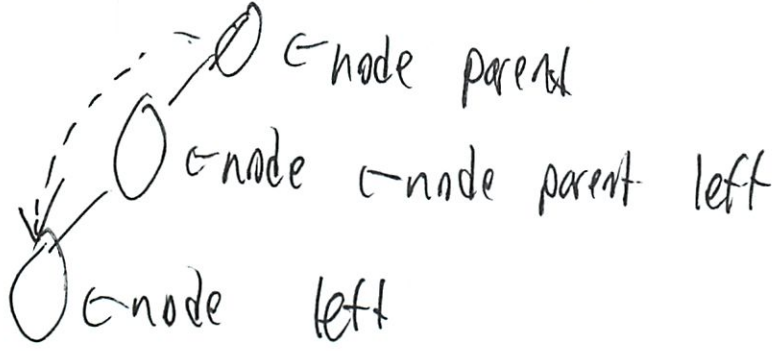 ← node parent
← node ← node parent left
← node left